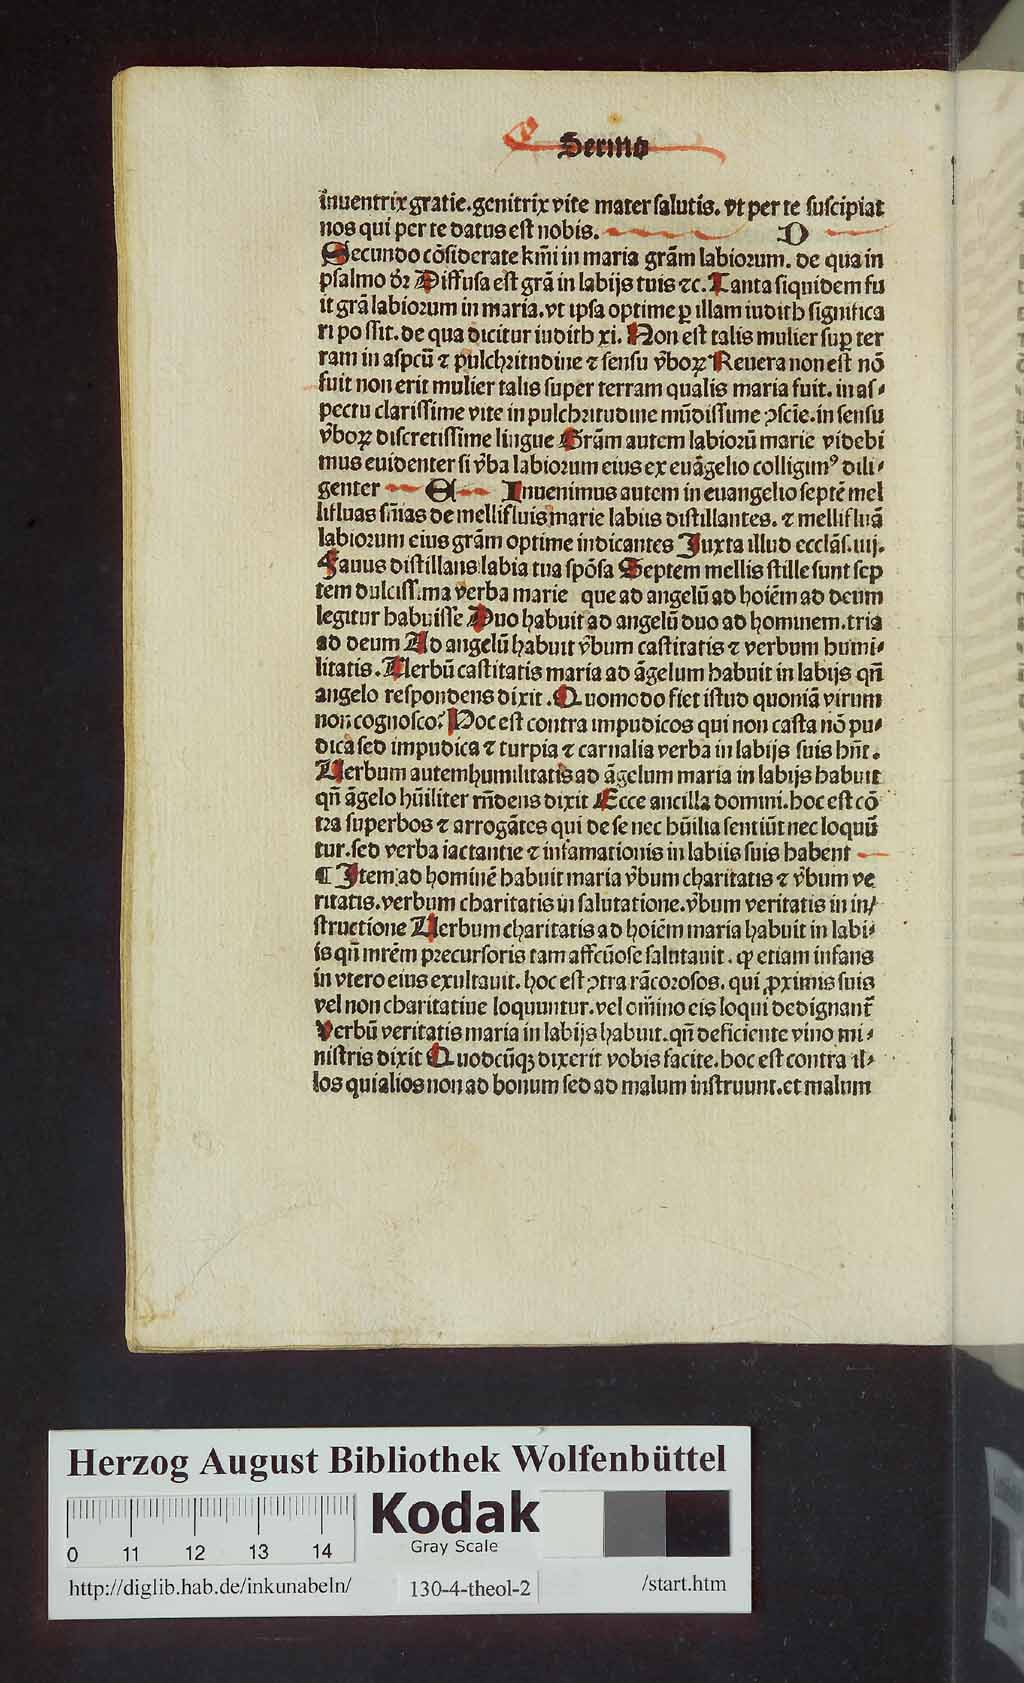 Sermo
inuentrix gratie. genitrix vite mater salutis. vt per te suscipiat
nos qui per te datus est nobis. D
Secundo cōsiderate kīmi in maria grām labiorum. de qua in
psalmo dr̄ Diffusa est grā in labijs tuis ⁊c. Tanta siquidem fu
it grā labiorum in maria. vt ipsa optime ꝑ illam iudith significa
ri possit. de qua dicitur iudith xi. Non est talis mulier suꝑ ter
ram in aspcū ⁊ pulchritudine ⁊ sensu v̄boꝝ Reuera non est nō
fuit non erit mulier talis super terram qualis maria fuit. in as⸗
pectu clarissime vite in pulchritudine mūdissime ꝯscīe. in sensu
v̄boꝝ discretissime lingue Grām autem labiorū marie videbi
mus euidenter si v̄ba labiorum eius ex euāgelio colligimꝰ dili⸗
genter E Inuenimus autem in euangelio septē mel
lifluas sn̄ias de mellifluis marie labiis distillantes. ⁊ mellifluā
labiorum eius grām optime indicantes Juxta illud ecclās. iiij.
Fauus distillans labia tua spōsa Septem mellis stille sunt sep
tem dulciss.ma verba marie que ad angelū ad hoiēm ad deum
legitur habuisse Duo habuit ad angelū duo ad hominem. tria
ad deum Ad angelū habuit v̄bum castitatis ⁊ verbum humi⸗
litatis. Uerbū castitatis maria ad āgelum habuit in labijs qn̄
angelo respondens dixit. Quomodo fiet istud quoniā virum
non cognosco? Hoc est contra impudicos qui non casta nō pu⸗
dica sed impudica ⁊ turpia ⁊ carnalia verba in labijs suis hn̄t.
Uerbum autem humilitatis ad āgelum maria in labijs habuit
qn̄ āgelo hūiliter rn̄dens dixit Ecce ancilla domini. hoc est cō
tra superbos ⁊ arrogātes qui de se nec hūilia sentiūt nec loquū
tur. sed verba iactantie ⁊ infamationis in labiis suis habent
¶ Item ad hominē habuit maria v̄bum charitatis ⁊ v̄bum ve
ritatis. verbum charitatis in salutatione. v̄bum veritatis in in⸗
structione Uerbum charitatis ad hoiēm maria habuit in labi⸗
is qn̄ mrēm precursoris tam affcūose salutauit. ꝙ etiam infans
in vtero eius exultauit. hoc est ꝯtra rācorosos. qui ꝓximis suis
vel non charitatiue loquuntur. vel om̄ino eis loqui dedignant̄
Verbū veritatis maria in labijs habuit. qn̄ deficiente vino mi⸗
nistris dixit Quodcūqꝫ dixerit vobis facite. hoc est contra il⸗
los qui alios non ad bonum sed ad malum instruunt. et malum
Herzog August Bibliothek Wolfenbüttel
Kodak
Gray Scale
0 11 12 13 14
http://diglib.hab.de/inkunabeln/ 130-4-theol-2 /start.htm